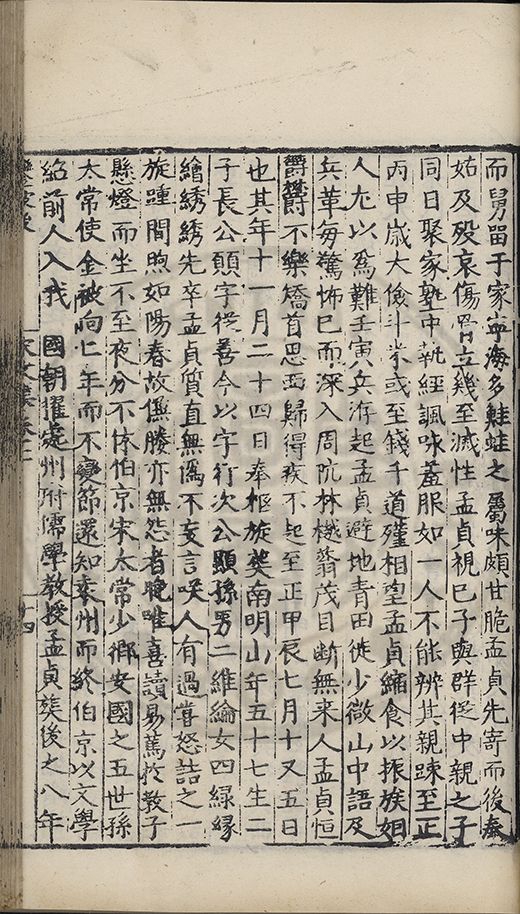 而舅畱于家寧海多鮭蛙之屬味頗甘脆孟貞先寄而後奉
姑及殁哀傷骨立幾至滅性孟貞視已子與群從中親之子
同日聚家塾中執經諷咏羞服如一人不能辨其親踈至正
丙申歲大儉斗米或至錢千道殣相望孟貞縮食以振族姻
人尤以爲難壬寅兵洊起孟貞避地青田徙少微山中語及
兵革每驚怖已而深入周阬林樾蓊茂目斷無来人孟貞恒
欝欝不樂矯首思西歸得疾不起至正甲辰七月十又五日
也其年十一月二十四日奉柩旋葬南明山年五十七生二
子長公顒字從善今以字行次公顯孫男二維綸女四緑縁
繪綉綉先卒孟貞質直無僞不妄言咲人有過嘗怒詰之一
旋踵間煦如陽春故僕媵亦無怨者晚唯喜讀易篤扵教子
懸燈而坐不至夜分不休伯京宋太常少卿安國之五世孫
太常使金被向七年而不變節還知袁州而終伯京以文學
紹前人入我 國朝擢處州府儒學教授孟貞葬後之八年
十四